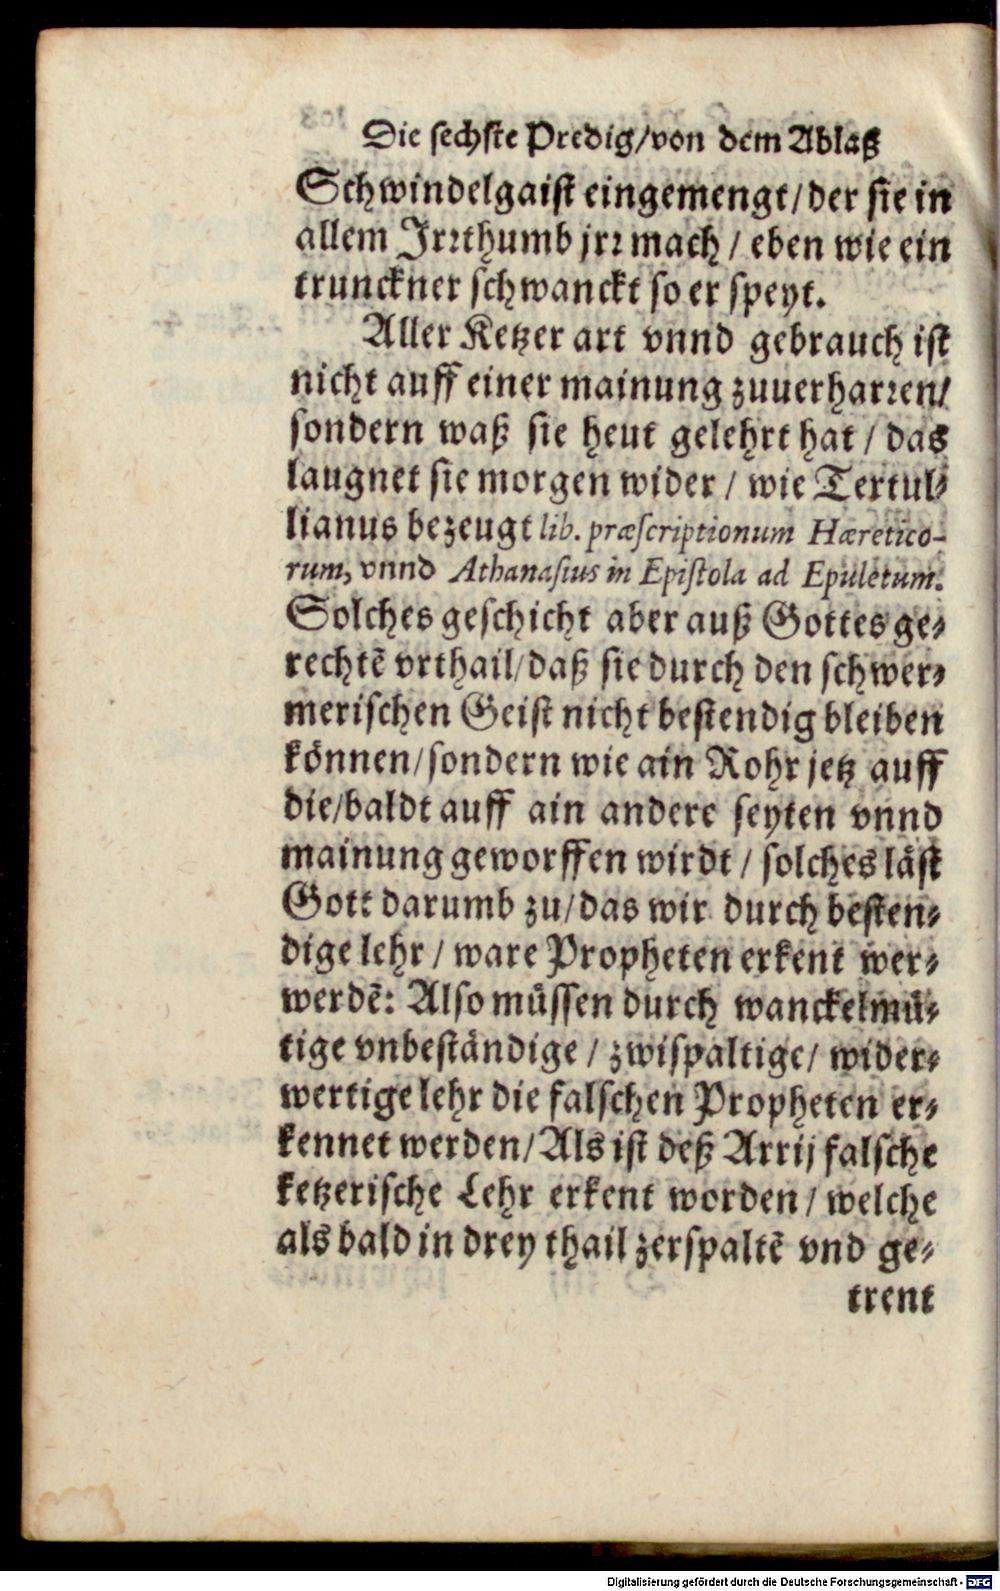 Die sechste Predig/von dem Ablaß
Schwindelgaist eingemengt/der sie in
allem Jrrthumb jrr mach / eben wie ein
trunckner schwanckt so er speyt.
Aller Ketzer art vnnd gebrauch ist
nicht auff einer mainung zuuerharren/
sondern waß sie heut gelehrt hat / das
laugnet sie morgen wider / wie Tertul-
lianus bezeugt lib. præscriptionum Hæretico-
rum, vnnd Athanasius in Epistola ad Epuletum.
Solches geschicht aber auß Gottes ge-
rechtẽ vrthail/daß sie durch den schwer-
merischen Geist nicht bestendig bleiben
können/sondern wie ain Rohr jetz auff
die/baldt auff ain andere seyten vnnd
mainung geworffen wirdt / solches läst
Gott darumb zu/das wir durch besten-
dige lehr / ware Propheten erkent wer-
werdẽ: Also müssen durch wanckelmü-
tige vnbeständige / zwispaltige/ wider-
wertige lehr die falschen Propheten er-
kennet werden/Als ist deß Arrij falsche
ketzerische Lehr erkent worden / welche
als bald in drey thail zerspaltẽ vnd ge-
trent
Digitalisierung gefördert durch die Deutsche Forschungsgemeinschaft - DFG